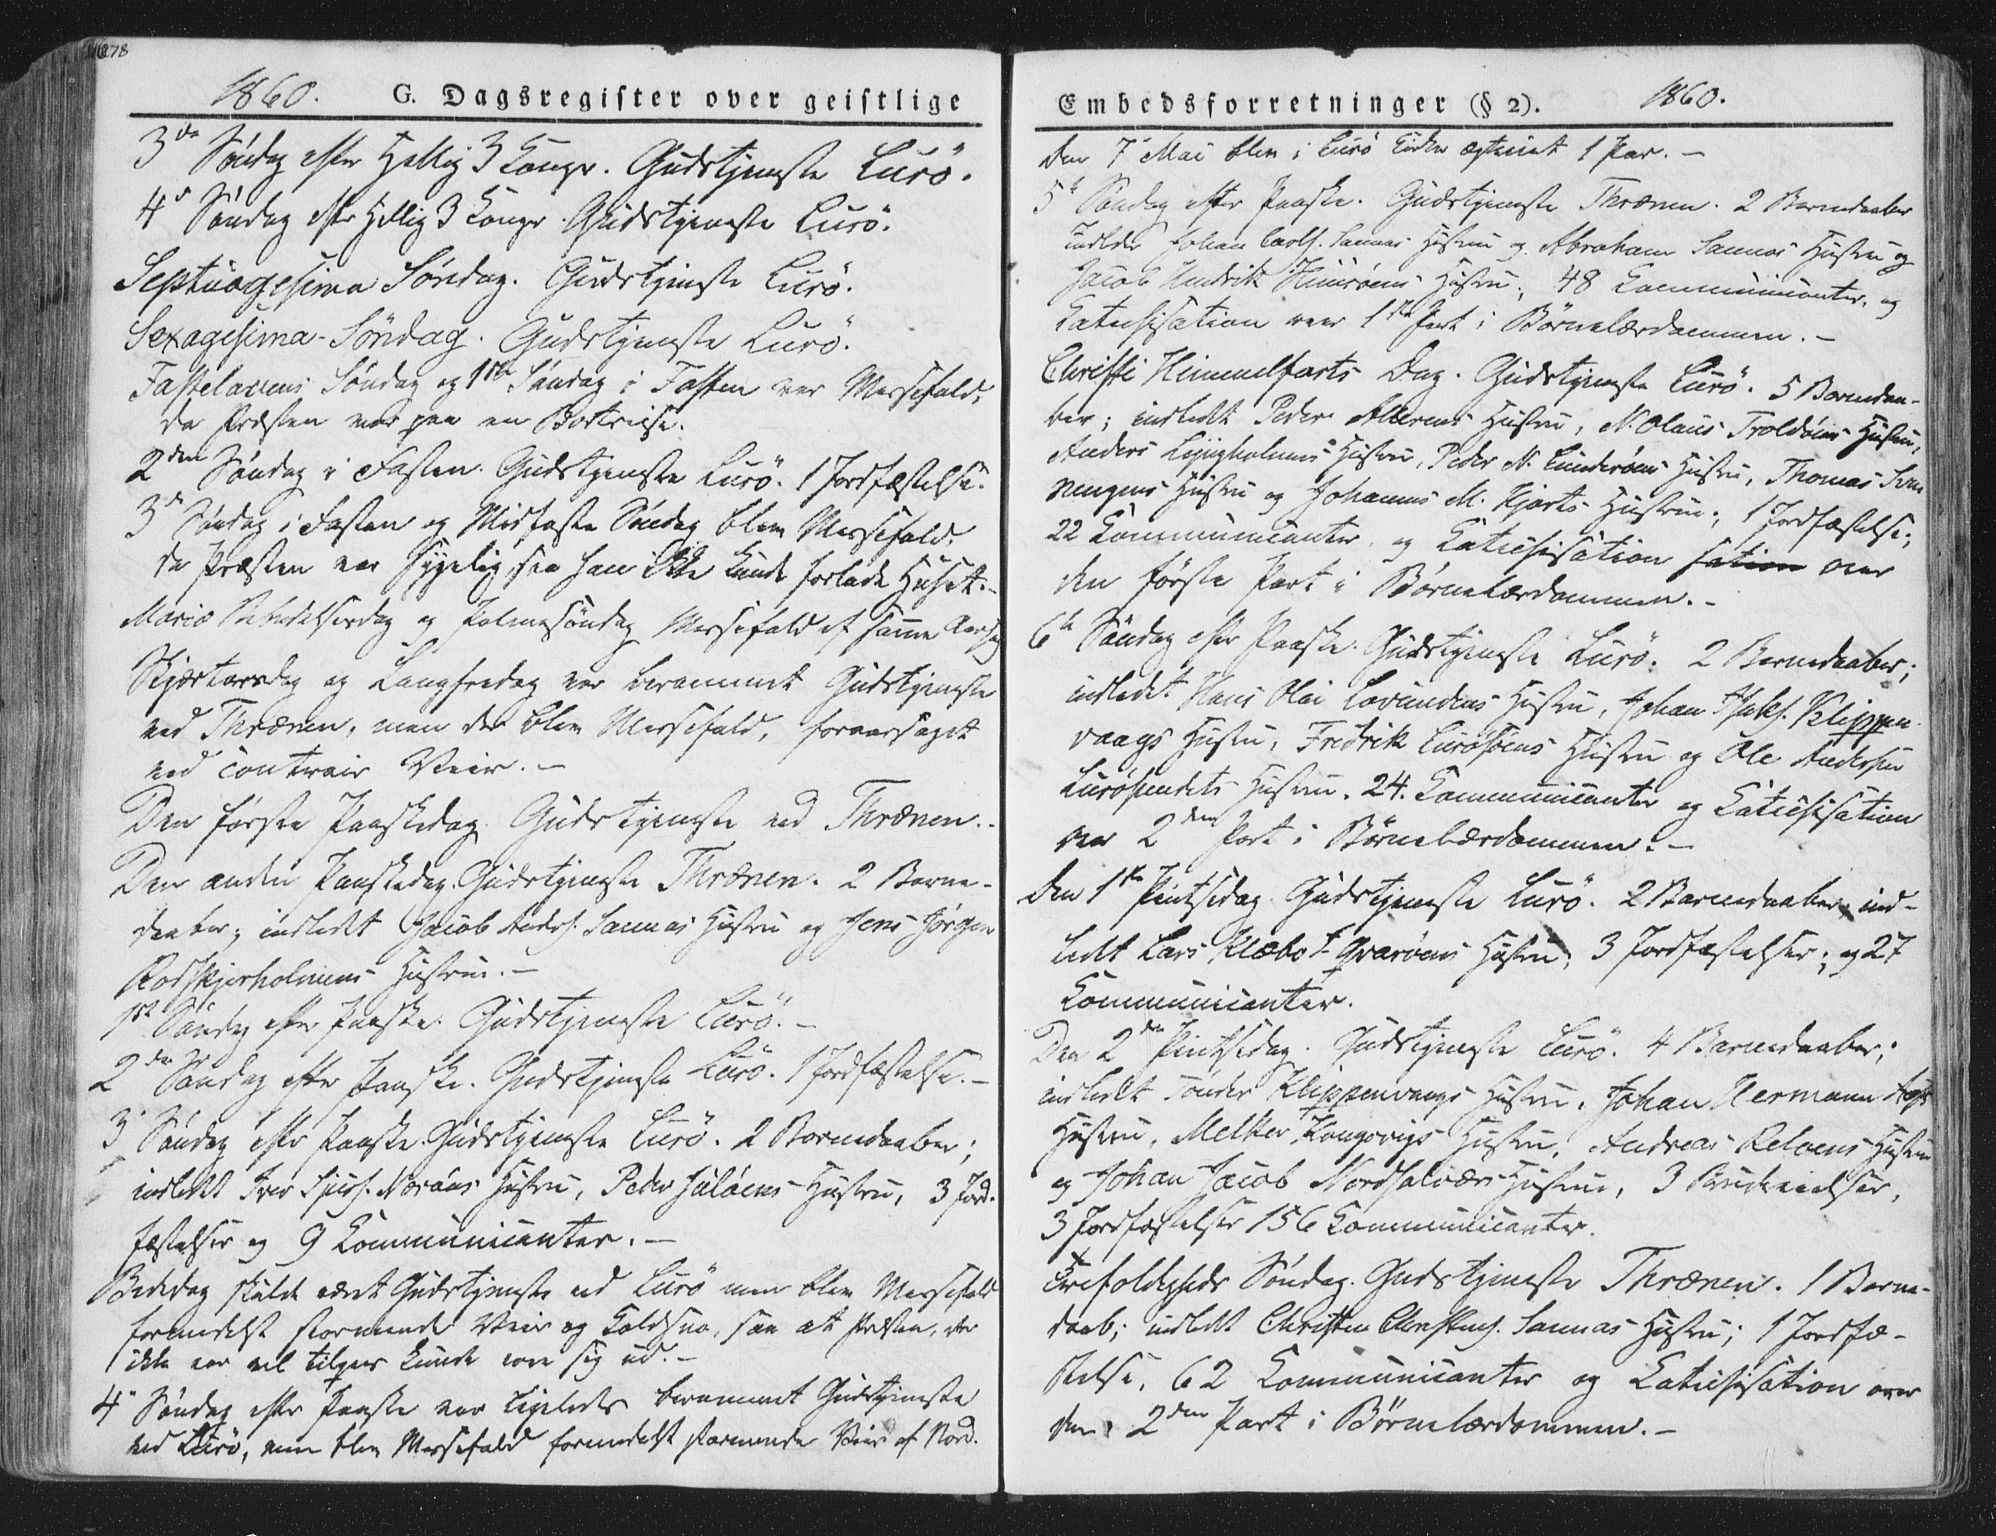 278
1860. G. Dagsregister over geistlige
3de Søndag efter Hellig 3 Konger. Gudstjeneste Lurö.
4de Søndag efter Hellig 3 Konger. Gudstjeneste Lurö.
Septuagesima Söndag. Gudstjeneste Lurö.
Sexagesima-Söndag. Gudstjeneste Lurö.
Fastelavens Söndag og 1ste Söndag i Fasten var Messefald,
da Præsten var paa en Bortreise.
2den Søndag i Fasten. Gudstjeneste Lurö. 1 Jordfæstelse.
3de Søndag i Fasten og Midfaste Søndag blev Messefald,
da Præsten var sygelig, saa han ikke kunde forlade Huset.-
Mariæ Bebudelsesdag og Palmesöndag Messefald af samme Aarsag
Skjærtorsdag og Langfredag var berammet Gudstjeneste
ved Thrænen, men der blev Messefald, foraarsaget
ved contrair Veir.-
Den første Paaskedag Gudstjeneste ved Thrænen.
Den anden Paaskedag Gudstjeneste Thrænen. 2 Barne-
daaber; indledet Jacob Anders. Sannas Hustru og Jens Jörgen
Rodskjærholmens Hustru.-
1ste Søndag efter Paaske. Gudstjeneste Lurö.-
2den Søndag efter Paaske. Gudstjeneste Lurö. 1 Jordfæstelse.-
3de Søndag efter Paaske Gudstjeneste Lurö. 2 Barnedaaber;
indledet Iver Noröens Hustru, Peder Hustru, 3 Jord-
fæstelser og 9 Kommunicanter.-
Bededag skulde været Gudstjeneste ved Lurö men blev Messefald
formedelst stormende Veir og Koldsno, saa at Præsten, der
ikke var vel tilpas kunde vove sig ud.-
4de Søndag efter Paaske var ligeledes berammet Gudstjeneste
ved Lurö, men blev Messefald formedelst stormende Veir af Nord.
Embedsforretninger (§ 2). 1860.
Den 7de Mai blev i Lurö Kirke ægteviet 1 Par.-
5te Søndag efter Paaske. Gudstjeneste Thrænen. 2 Barnedaaber
indledet Johan Sannas Hustru og Abraham Sannas Hustru og
Jacob Hendrik Hustru, 48 Communicanter, og
Katechisation over 1ste Part i Børnelærdommen.-
Christi Himmelfarts Dag. Gudstjeneste Lurö. 5 Barnedaa-
ber; indledt Peder Hustru, N. Olaus Troldöens Hustru,
Anders Lyngholmens Hustru, Peder N. Hustru, Thomas
Hustru og Johannes M. Hjarts Hustru; 1 Jordfæstelse;
22 Kommunicanter og Katechisation sation over
den første Part i Børnelærdommen.-
6te Søndag efter Paaske. Gudstjeneste Lurö. 2 Barnedaaber;
indledet Hans Olai Lovundens Hustru, Johan Klippen-
vaags Hustru, Fredrik Luröhoens Hustru og Ole Andersen
Lurösundets Hustru. 24. Kommunicanter og Katechisation
over 2den Part i Børnelærdommen.-
Den 1ste Pintsedag Gudstjeneste Lurö. 2 Barnedaaber ind-
ledt Lars Klæbo Hustru, 3 Jordfæstelser; og 27
Kommunicanter.
Den 2den Pintsedag. Gudstjeneste Lurö. 4 Barnedaaber;
indledt Tönder Klippenvaags Hustru, Johan Hermann
Hustru, Melker Kongsvigs Hustru, Andreas Reløens Hustru
og Johan Jacob Nordsolvær Hustru, 3 Brudevielser,
3 Jordfæstelser 156 Communicanter.
Trefoldigheds Söndag. Gudstjeneste Thrænen. 1 Barne-
daab; indledt Christen Christens. Sannas Hustru; 1 Jordfæ-
stelse, 62 Kommunicanter og Katechisation over
den 2den Part i Børnelærdommen.-